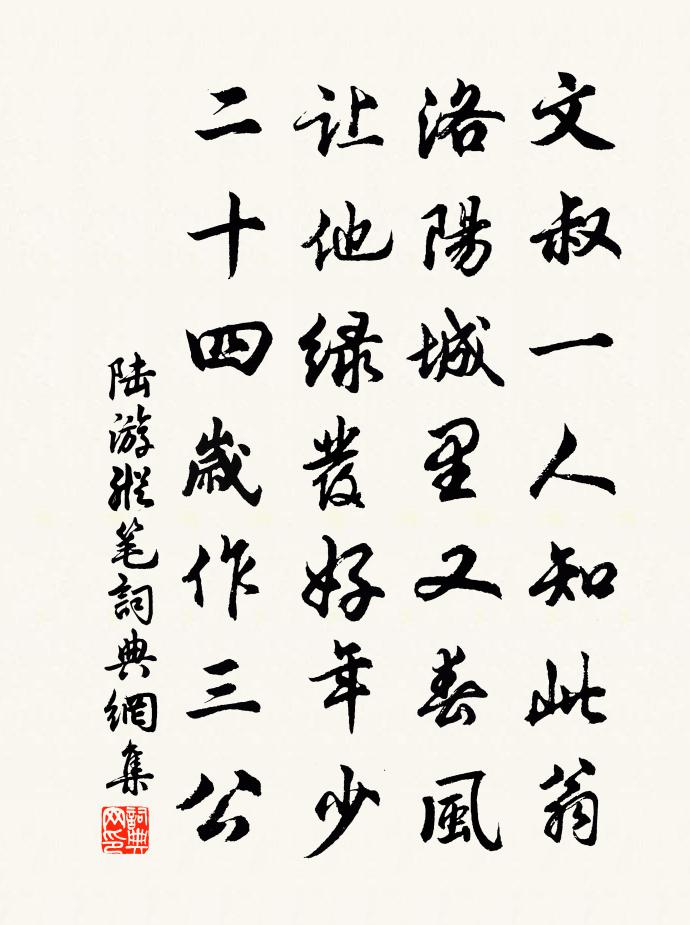 文叔一人知此翁
洛陽城里又春風
让他绿發好年少
二十四歲作三公
陆游縱笔詞典網集
詞典网印